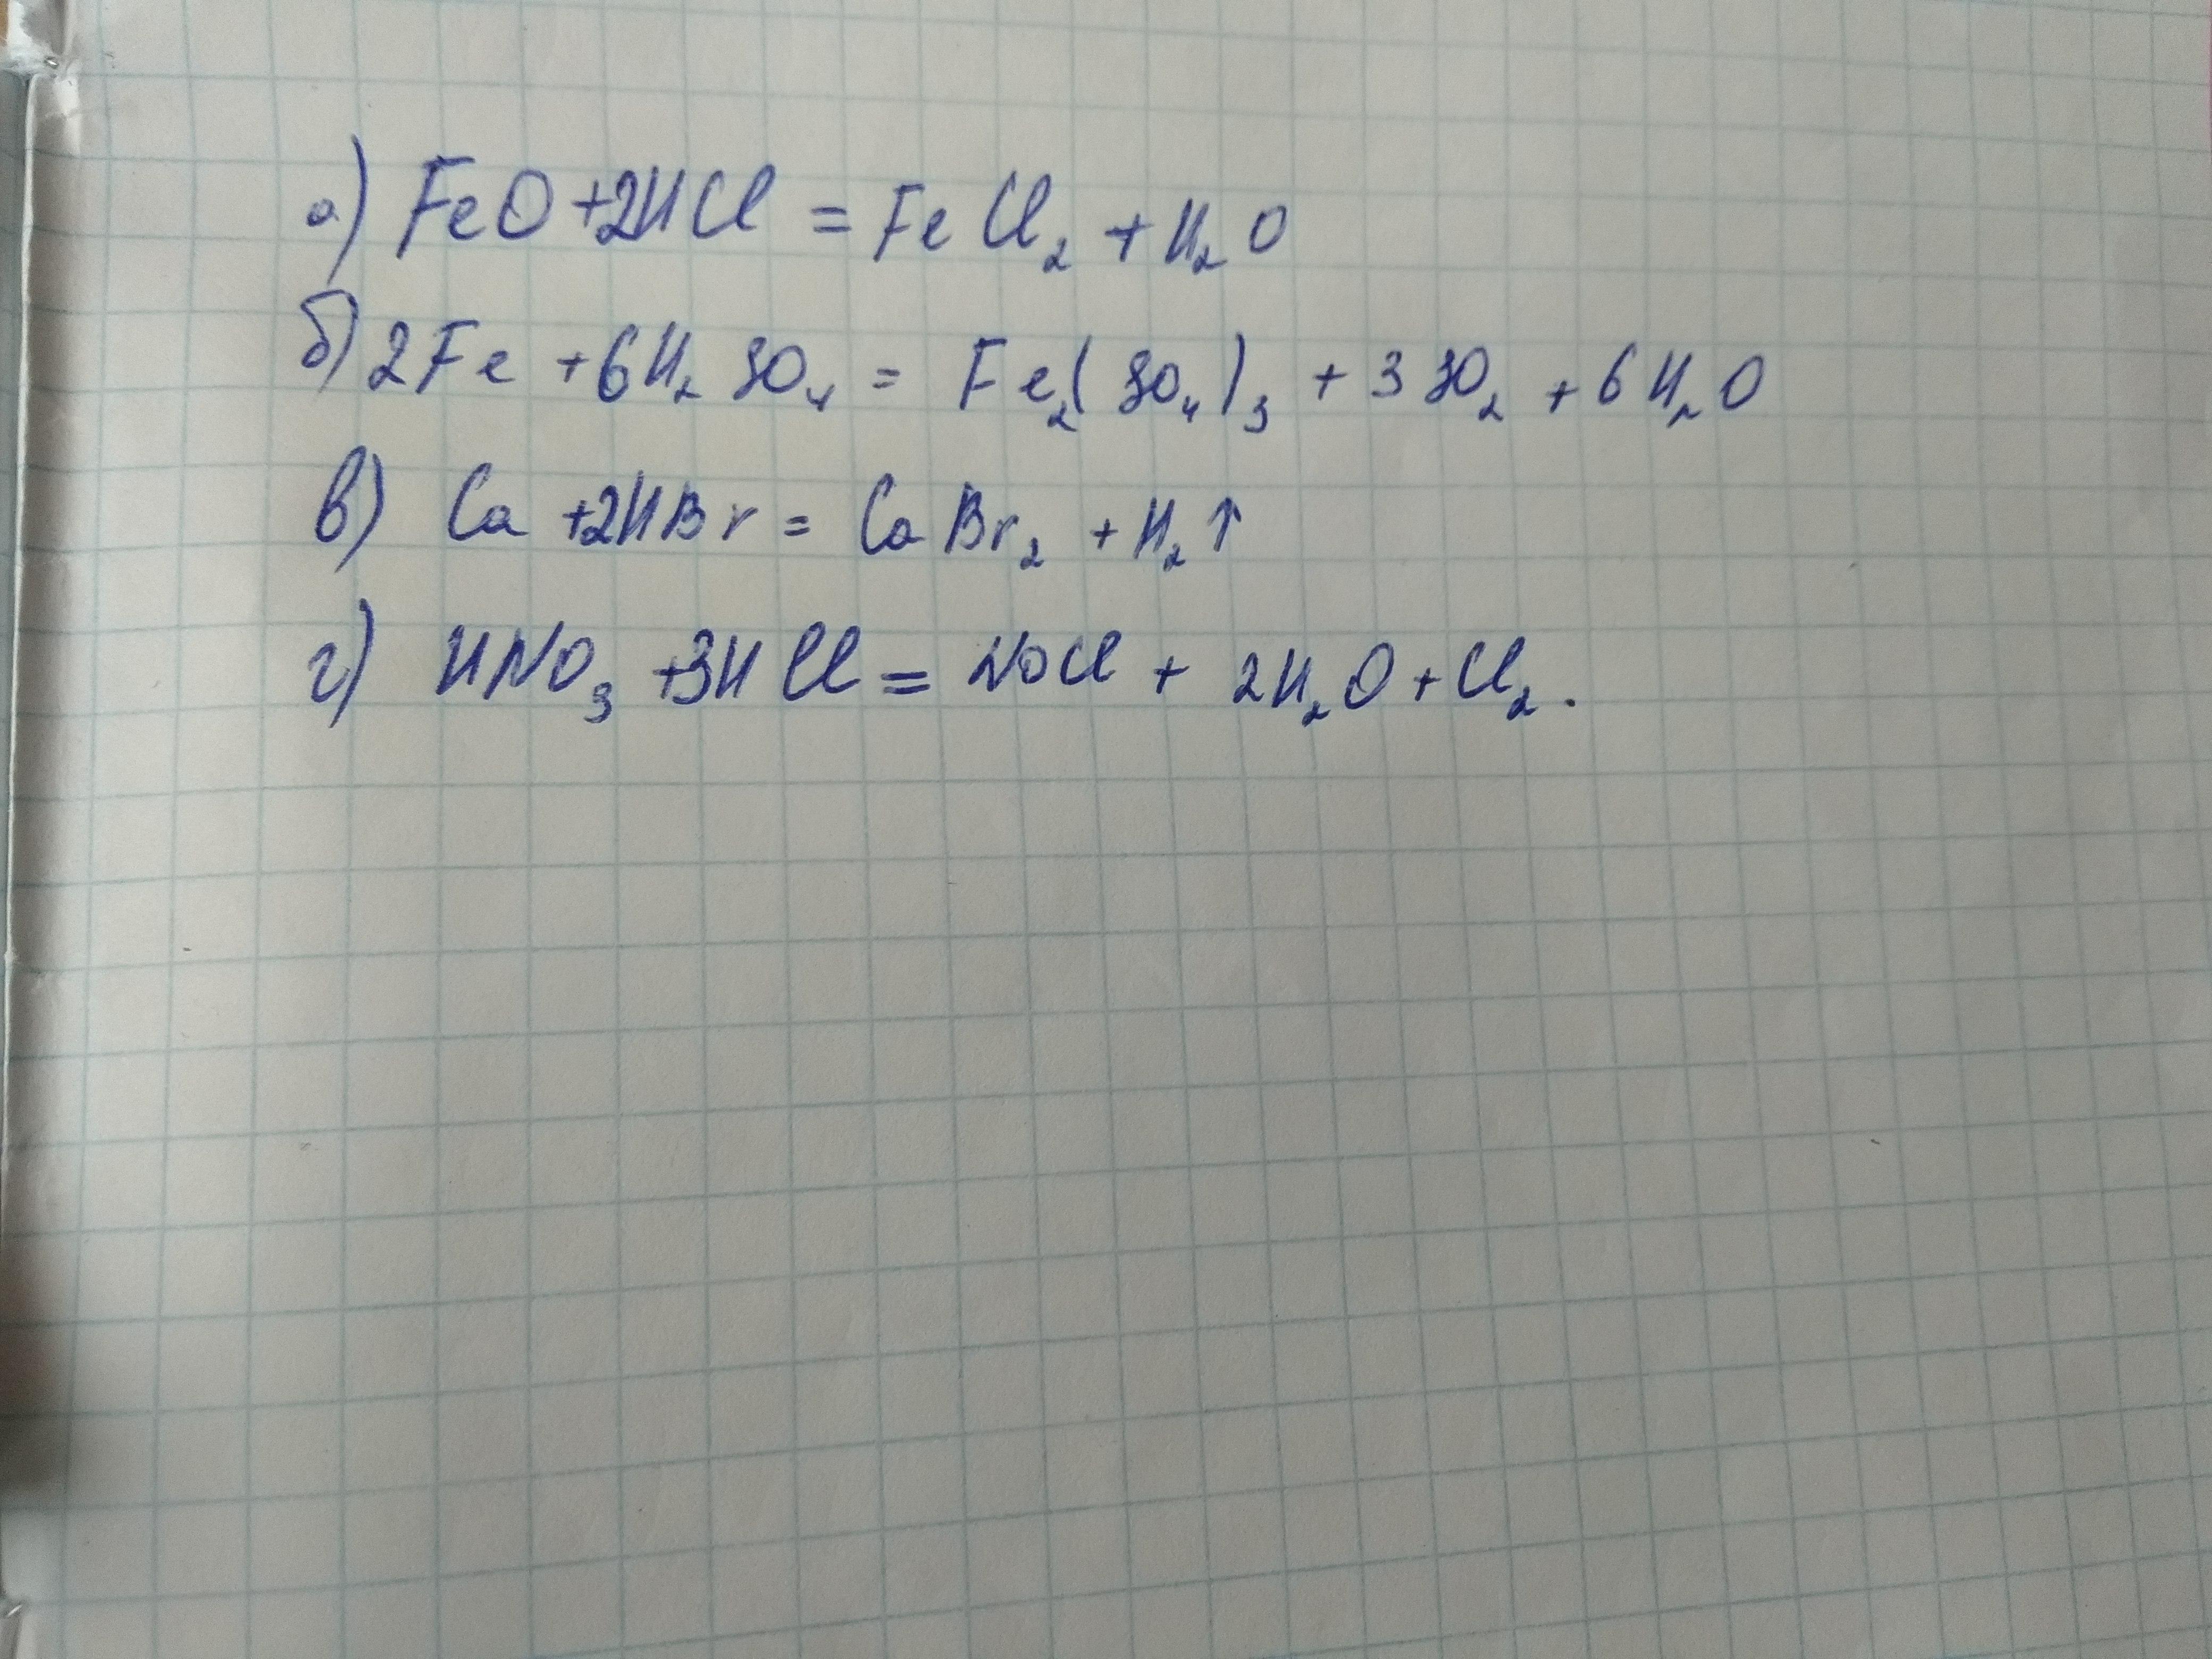 а) FeO + 2HCl = FeCl₂ + H₂O
б) 2Fe + 6H₂SO₄ = Fe₂(SO₄)₃ + 3SO₂ + 6H₂O
в) Ca + 2HBr = CaBr₂ + H₂↑
г) HNO₃ + 3HCl = NOCl + 2H₂O + Cl₂.